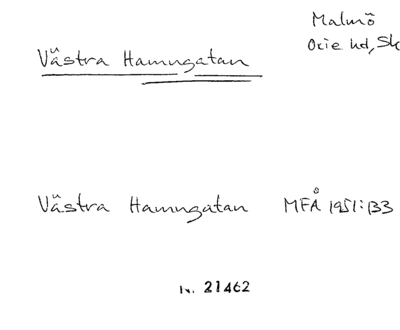 Malmö
Oxie hd, Sk
Västra Hamngatan
Västra Hamngatan MFÅ 1951:133
N. 21462